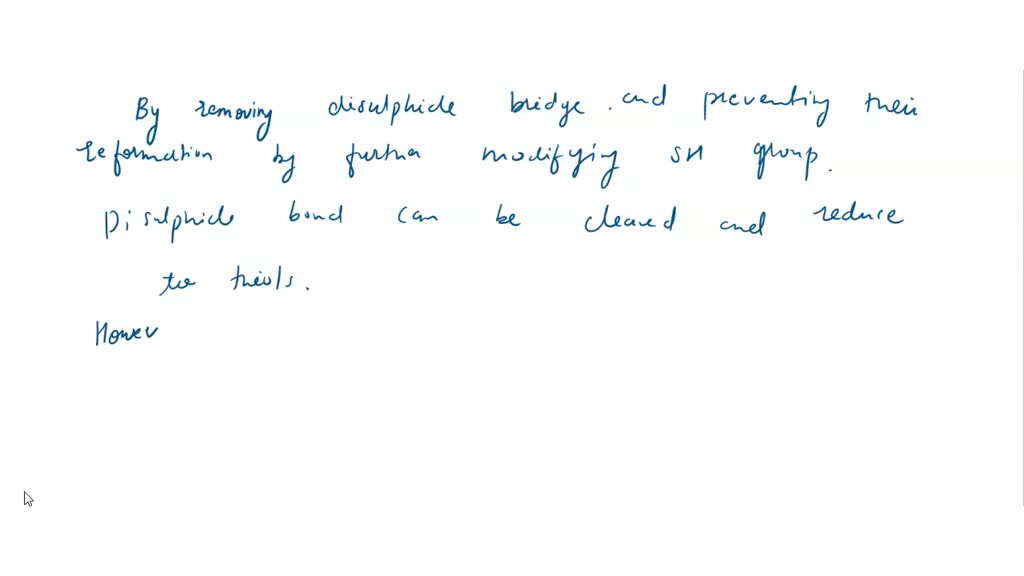 By removing disulphide bridge . and preventing their
reformation by further modifying SH group.
Disulphide bond can be cleaved and reduce
to thiols.
Howev